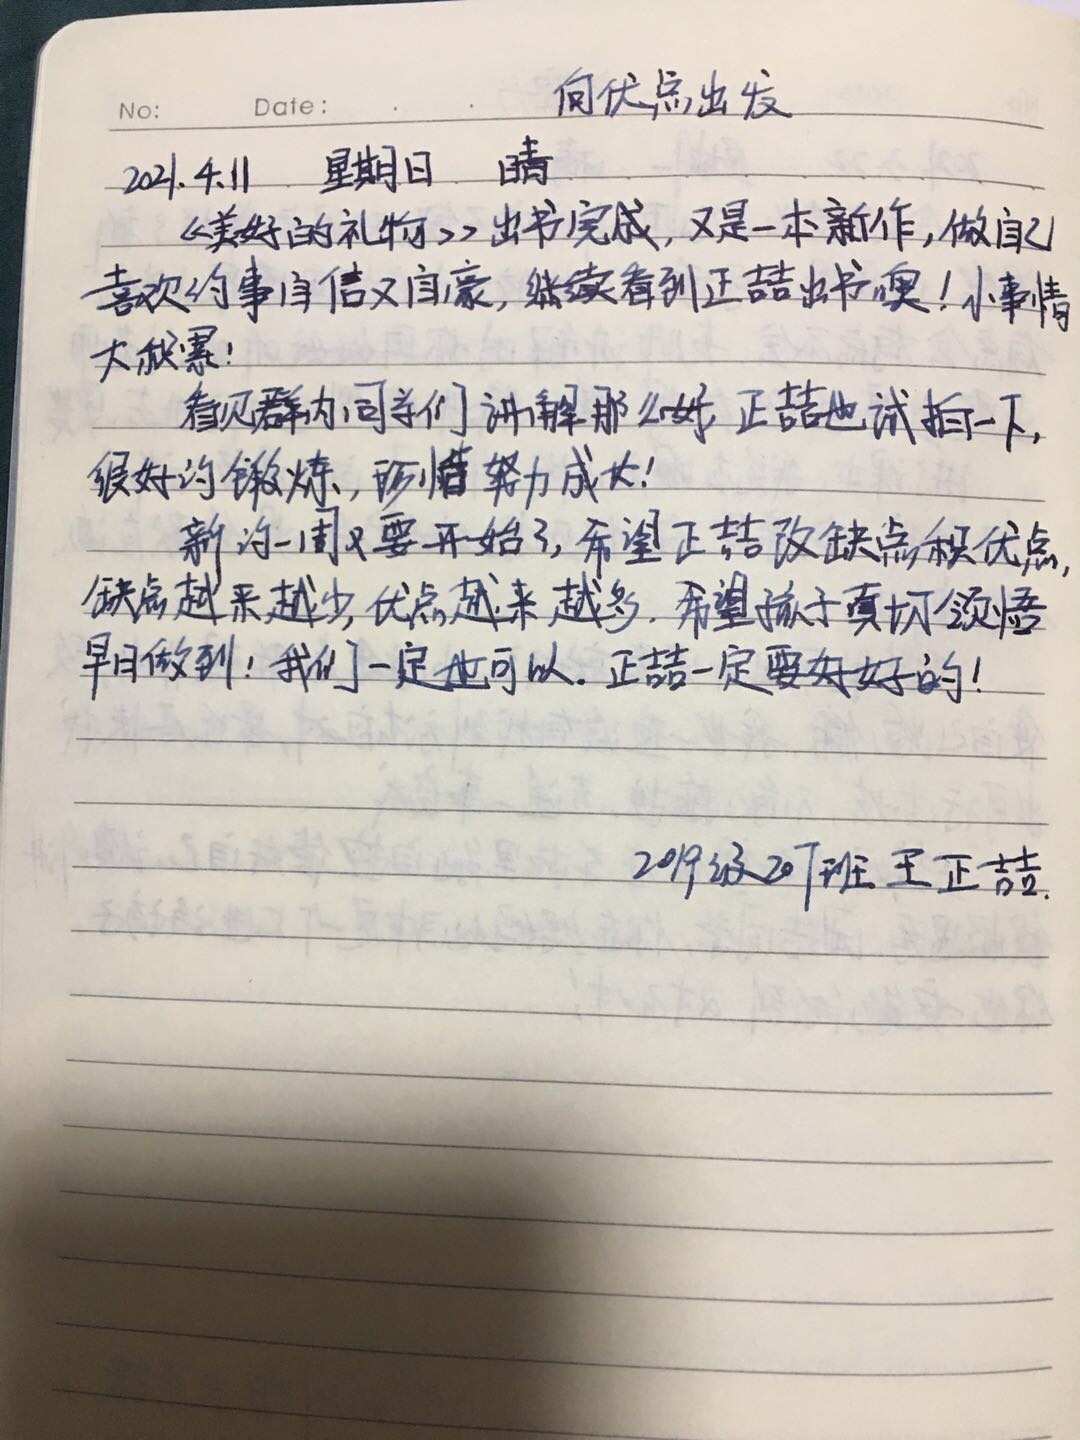 向优点出发
No: Date: . .
2021.4.11 星期日 晴
《美好的礼物>> 出书完成,又是一本新作,做自己
喜欢的事自信又自豪,继续看到正喆出书噢!小事情
大积累!
看见群内同学们讲解那么好,正喆也试拍一下,
很好的锻炼,珍惜努力成长!
新的一周又要开始了,希望正喆改缺点积优点,
缺点越来越少,优点越来越多.希望孩子真切领悟
早日做到!我们一定也可以.正喆一定要好好的!
2019级207班王正喆.